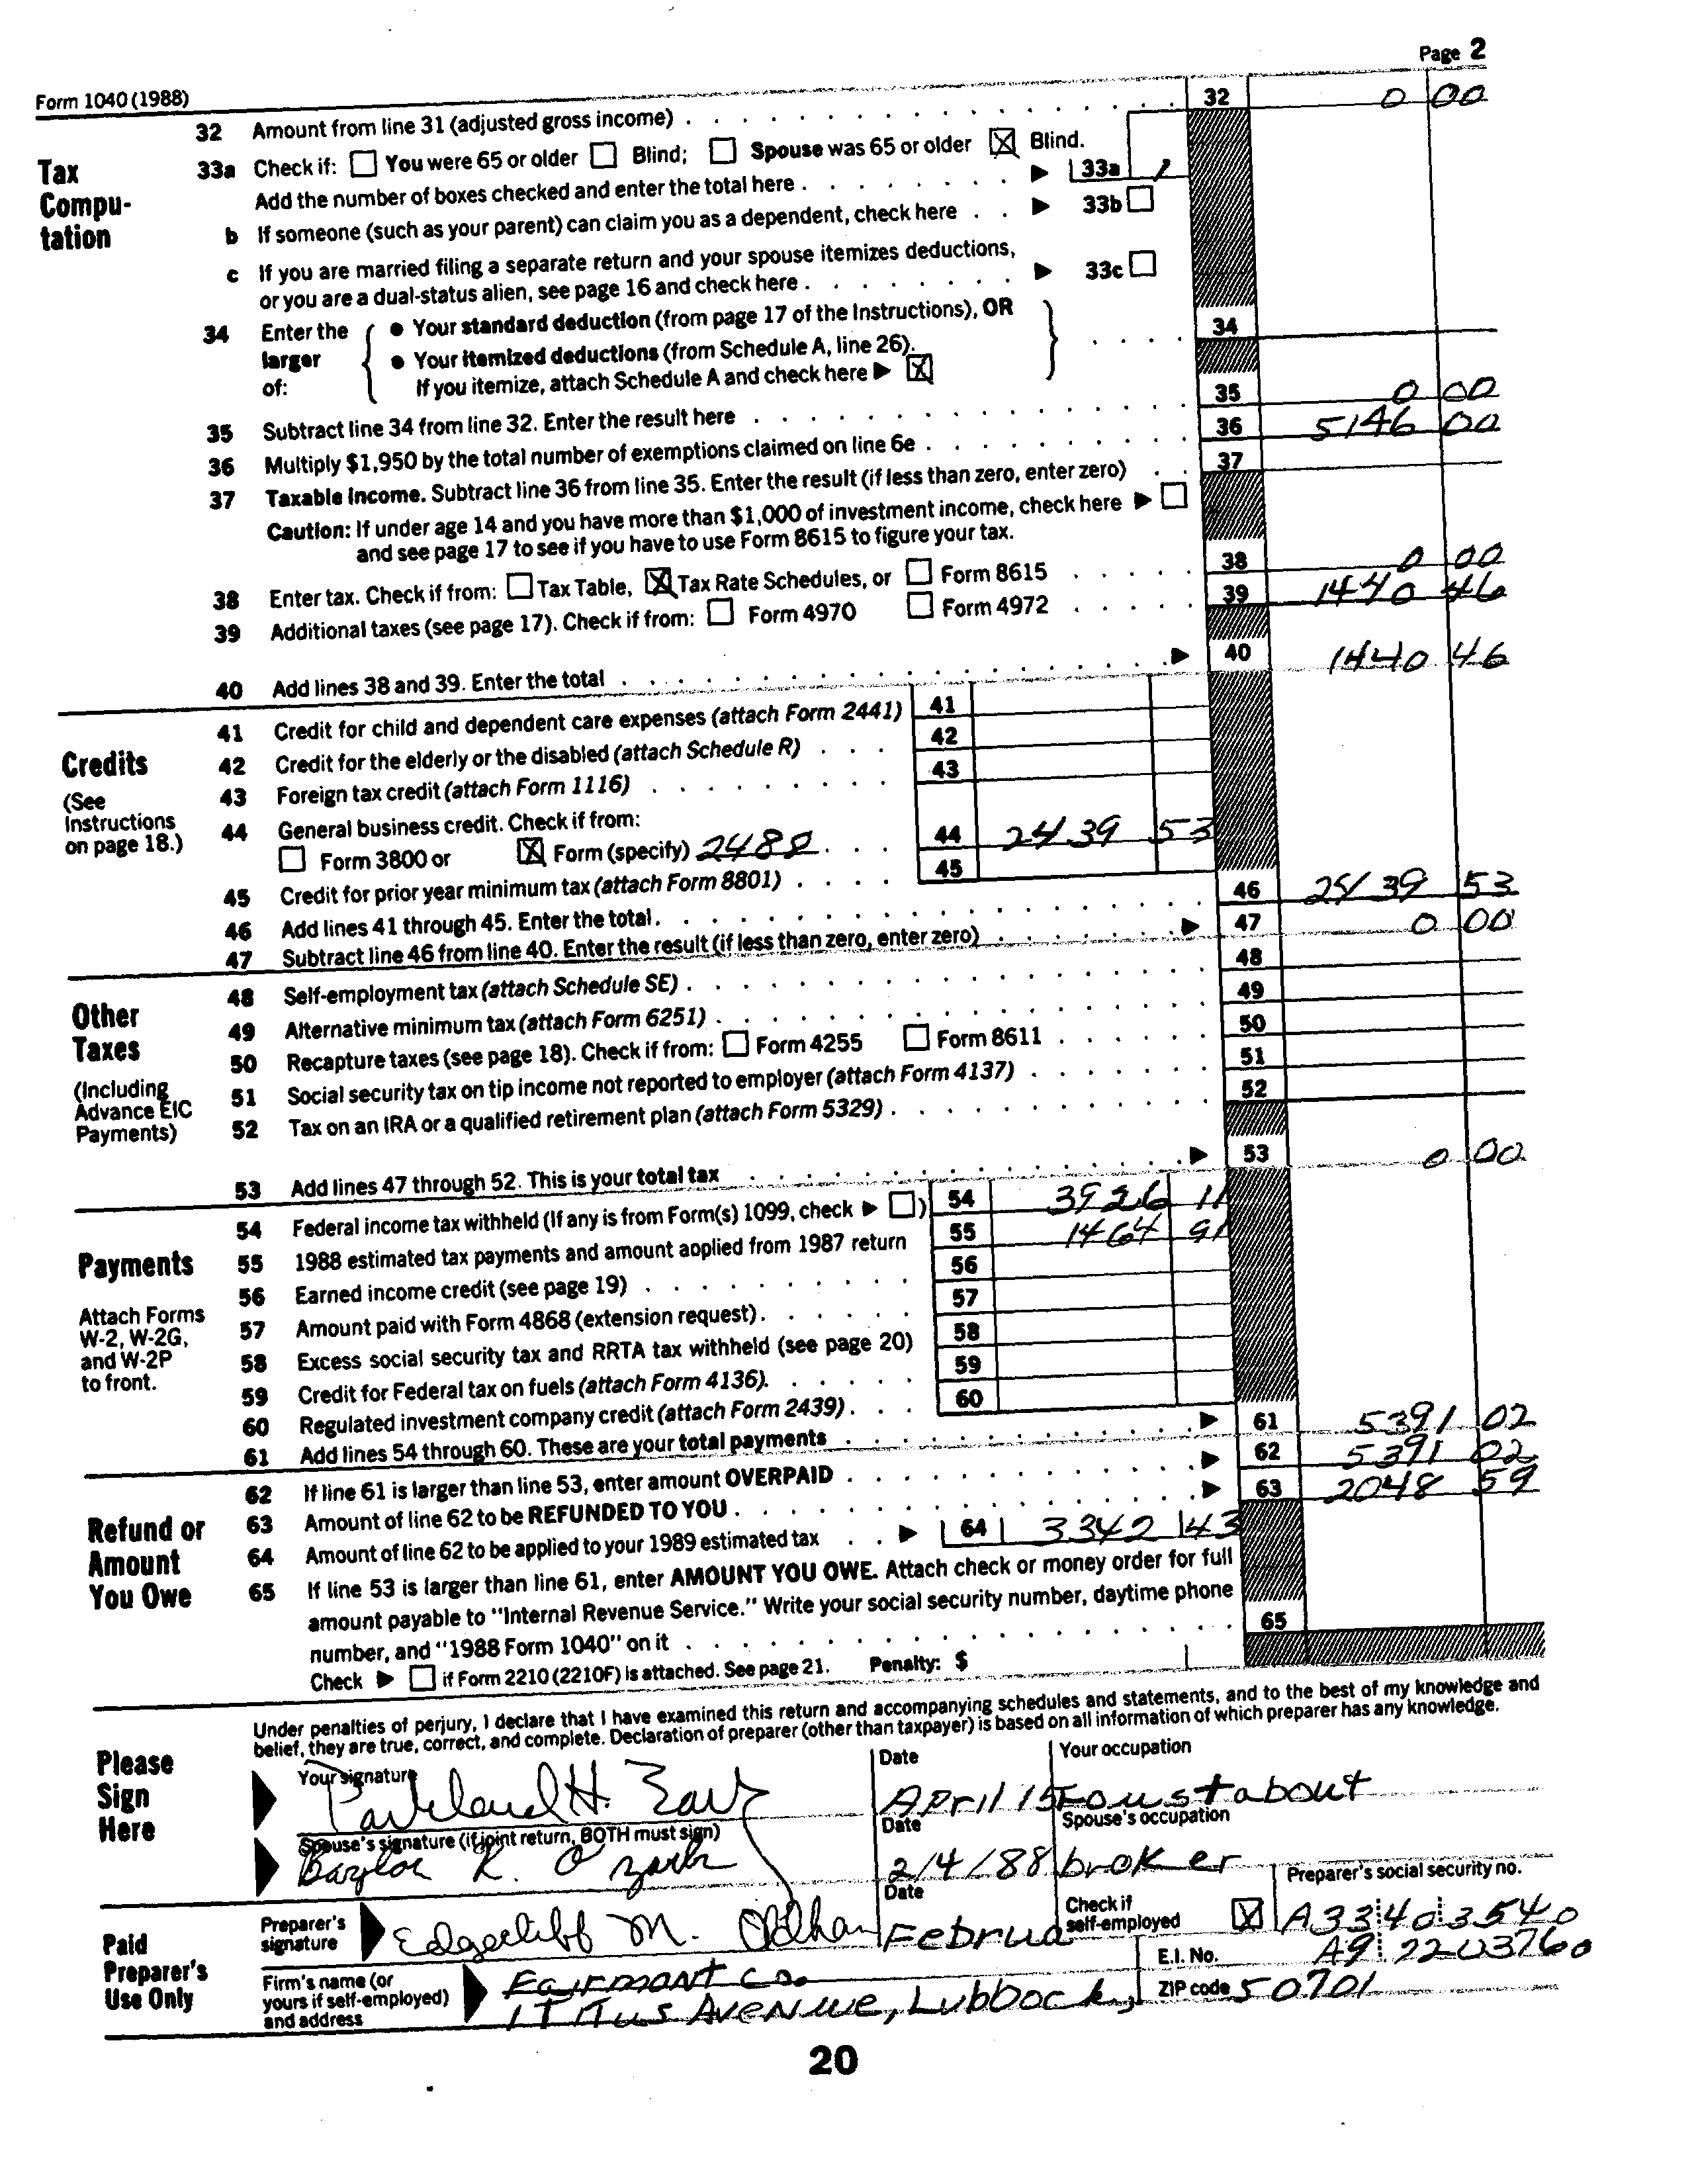 Page 2
Form 1040 (1988)
32 Amount from line 31 (adjusted gross income) 32 0 00
Tax Compu-tation
33a Check if: You were 65 or older Blind; Spouse was 65 or older X Blind.
Add the number of boxes checked and enter the total here 33a 1
b If someone (such as your parent) can claim you as a dependent, check here 33b
c If you are married filing a separate return and your spouse itemizes deductions,
or you are a dual-status alien, see page 16 and check here 33c
34 Enter the larger of: • Your standard deduction (from page 17 of the Instructions), OR 34
• Your itemized deductions (from Schedule A, line 26).
If you itemize, attach Schedule A and check here ▶ X
35 Subtract line 34 from line 32. Enter the result here 35 0 00
36 Multiply $1,950 by the total number of exemptions claimed on line 6e 36 5146 00
37 Taxable income. Subtract line 36 from line 35. Enter the result (if less than zero, enter zero) 37
Caution: If under age 14 and you have more than $1,000 of investment income, check here ▶
and see page 17 to see if you have to use Form 8615 to figure your tax.
38 Enter tax. Check if from: Tax Table, X Tax Rate Schedules, or Form 8615 38 0 00
39 Additional taxes (see page 17). Check if from: Form 4970 Form 4972 39 1440 46
40 Add lines 38 and 39. Enter the total ▶ 40 1440 46
Credits
(See Instructions on page 18.)
41 Credit for child and dependent care expenses (attach Form 2441) 41
42 Credit for the elderly or the disabled (attach Schedule R) 42
43 Foreign tax credit (attach Form 1116) 43
44 General business credit. Check if from:
Form 3800 or X Form (specify) 2480 44 2439 53
45 Credit for prior year minimum tax (attach Form 8801) 45
46 Add lines 41 through 45. Enter the total. 46 2439 53
47 Subtract line 46 from line 40. Enter the result (if less than zero, enter zero) ▶ 47 0 00
Other Taxes
(Including Advance EIC Payments)
48 Self-employment tax (attach Schedule SE) 48
49 Alternative minimum tax (attach Form 6251) 49
50 Recapture taxes (see page 18). Check if from: Form 4255 Form 8611 50
51 Social security tax on tip income not reported to employer (attach Form 4137) 51
52 Tax on an IRA or a qualified retirement plan (attach Form 5329) 52
53 Add lines 47 through 52. This is your total tax ▶ 53 0 00
Payments
Attach Forms W-2, W-2G, and W-2P to front.
54 Federal income tax withheld (If any is from Form(s) 1099, check ▶ ) 54 3926 11
55 1988 estimated tax payments and amount applied from 1987 return 55 1464 91
56 Earned income credit (see page 19) 56
57 Amount paid with Form 4868 (extension request) 57
58 Excess social security tax and RRTA tax withheld (see page 20) 58
59 Credit for Federal tax on fuels (attach Form 4136). 59
60 Regulated investment company credit (attach Form 2439) 60
61 Add lines 54 through 60. These are your total payments ▶ 61 5391 02
Refund or Amount You Owe
62 If line 61 is larger than line 53, enter amount OVERPAID ▶ 62 5391 02
63 Amount of line 62 to be REFUNDED TO YOU ▶ 63 2048 59
64 Amount of line 62 to be applied to your 1989 estimated tax ▶ 64 3342 43
65 If line 53 is larger than line 61, enter AMOUNT YOU OWE. Attach check or money order for full
amount payable to "Internal Revenue Service." Write your social security number, daytime phone
number, and "1988 Form 1040" on it 65
Check ▶ if Form 2210 (2210F) is attached. See page 21. Penalty: $
Under penalties of perjury, I declare that I have examined this return and accompanying schedules and statements, and to the best of my knowledge and
belief, they are true, correct, and complete. Declaration of preparer (other than taxpayer) is based on all information of which preparer has any knowledge.
Please Sign Here
Your signature Date Your occupation
April 15 Foustabout
Spouse's signature (if joint return, BOTH must sign) Date Spouse's occupation
Baylor R. Ozark 2/4/88 broker
Paid Preparer's Use Only
Preparer's signature Edgecliff M. Oldham Date Februa Check if self-employed X Preparer's social security no. A33 40 3540
Firm's name (or yours if self-employed) and address Fairmont Co. E.I. No. A9 2203760
1 Titus Avenue, Lubbock, ZIP code 50701
20